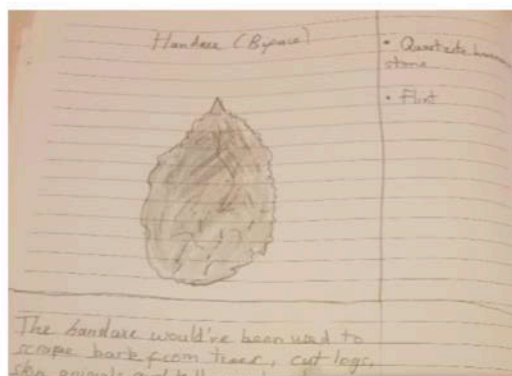 Handaxe (Byface)
• Quartzite hammer
stone
• Flint
The handaxe would've been used to
scrape bark from trees, cut logs,
skin animals and